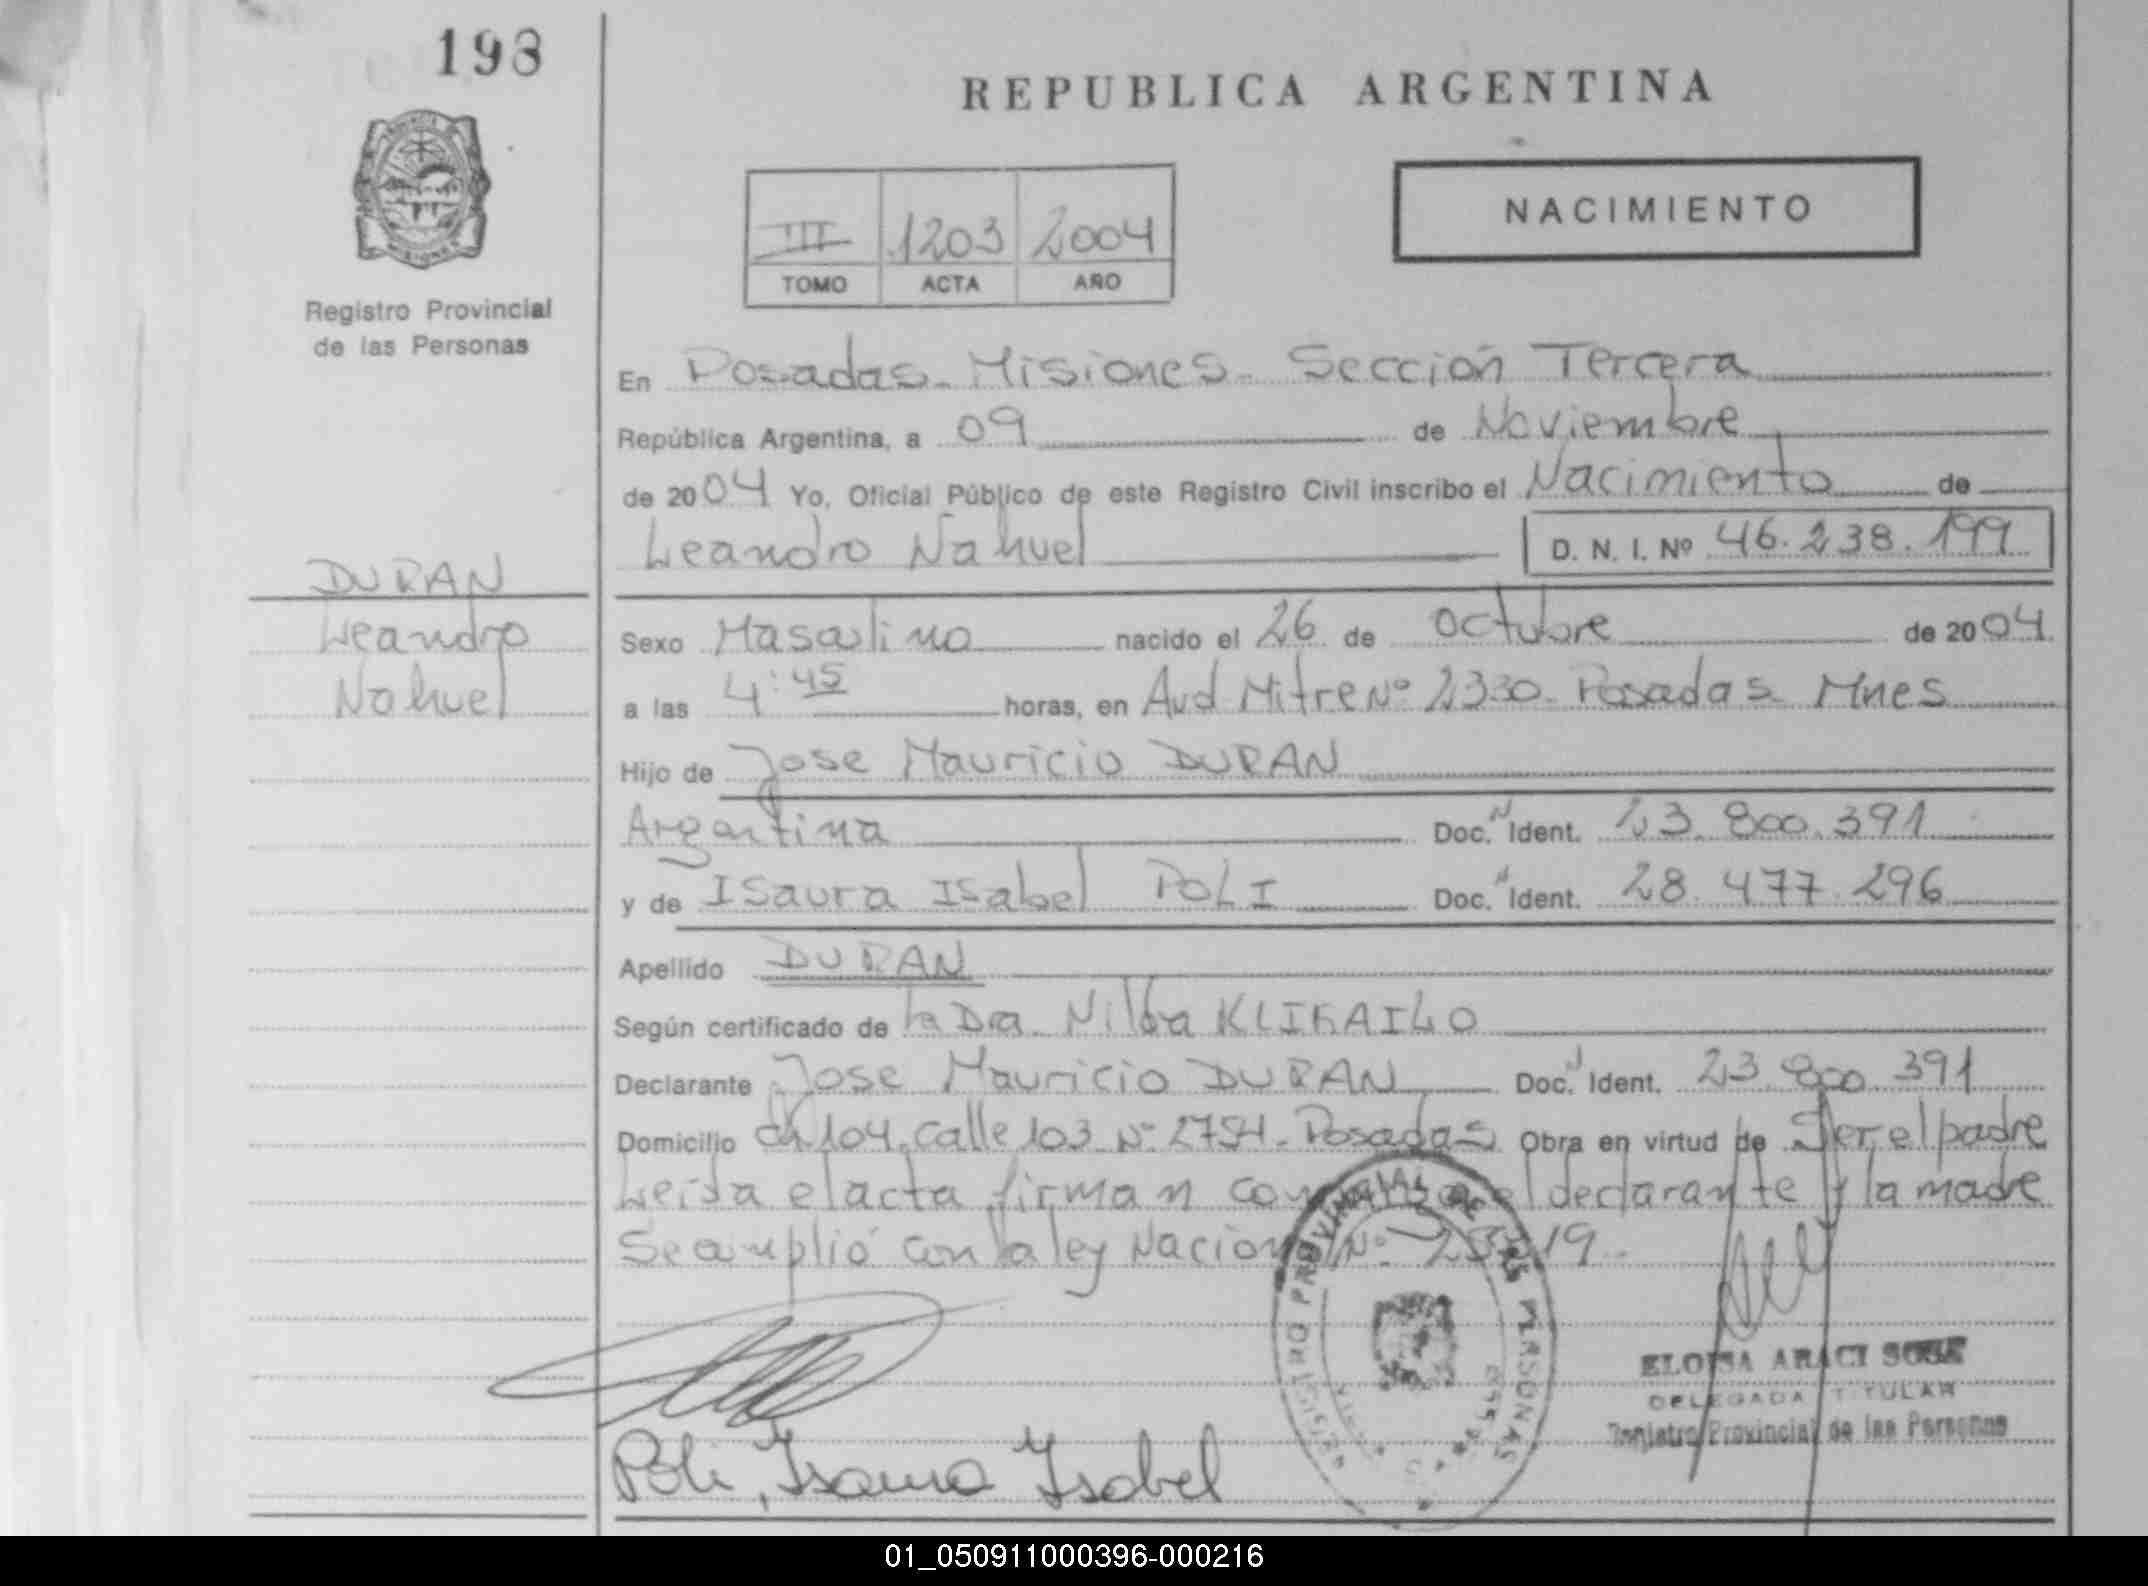 198
REPUBLICA ARGENTINA
NACIMIENTO
III 1203 2004
TOMO ACTA AÑO
Registro Provincial
de las Personas
En Posadas - Misiones - Sección Tercera
República Argentina, a 09 de Noviembre
de 2004 Yo, Oficial Público de este Registro Civil inscribo el Nacimiento de
Leandro Nahuel D. N. I. Nº 46.238.199
DURAN
Leandro
Nahuel
Sexo Masculino nacido el 26 de Octubre de 2004
a las 4:45 horas, en Avd Mitre Nº 2330 - Posadas - Mnes
Hijo de Jose Mauricio DURAN
Argentina Doc. Ident. 23.800.391
y de Isaura Isabel POLI Doc. Ident. 28.477.296
Apellido DURAN
Según certificado de la Dra. Nilda
Declarante Jose Mauricio DURAN Doc. Ident. 23.800.391
Domicilio Ch 104 Calle 103 Nº - Posadas Obra en virtud de Ser el padre
Leída el acta firman el declarante y la madre
Se cumplió con la ley Nacional Nº
REGISTRO PROVINCIAL DE LAS PERSONAS
ELOISA ARACI SOSA
DELEGADA TITULAR
Registro Provincial de las Personas
Poli, Isaura Isabel
01_050911000396-000216